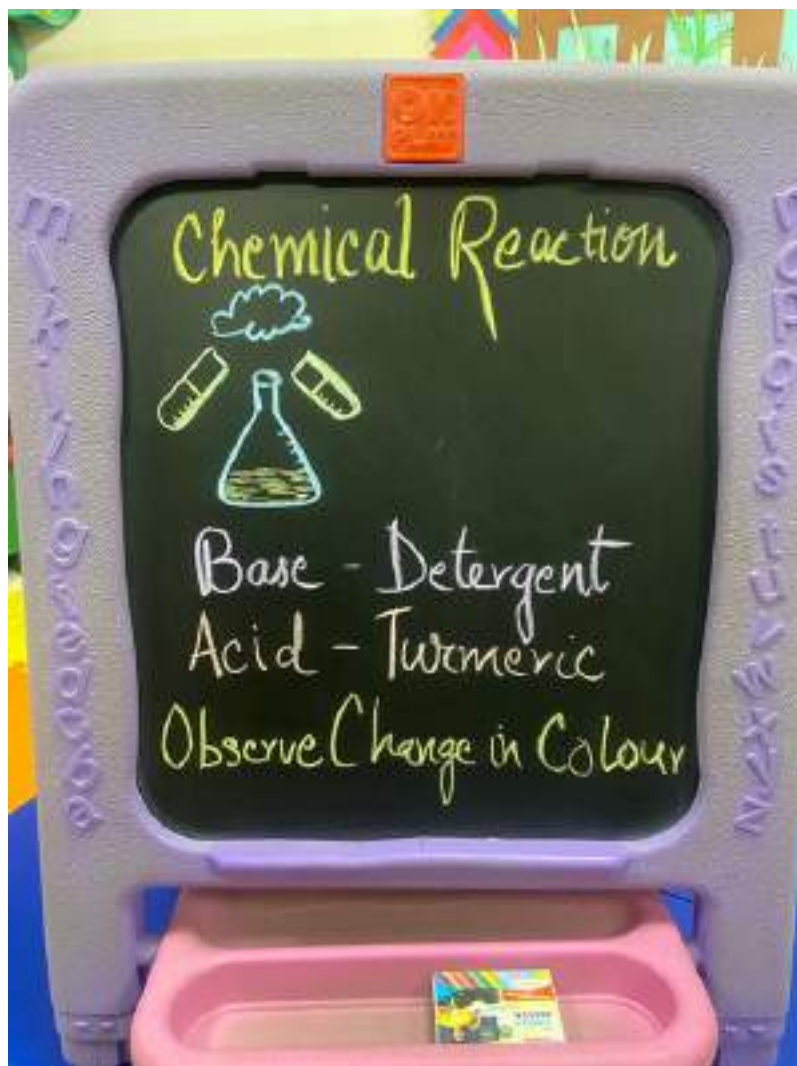 Chemical Reaction
Base - Detergent
Acid - Turmeric
Observe Change in Colour